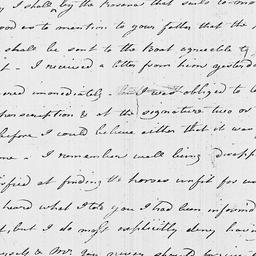 I shall by the
good as to mention to your father that the
shall be sent to the Boat agreeable to
I received a letter from him yesterday
immediately I was obliged to
& at the signature two or
before I could believe either that it was
me - I remember well being
at finding the horses unfit for
heard what I told you I had been informed
but I do most explicitly deny having
& Mr you never should